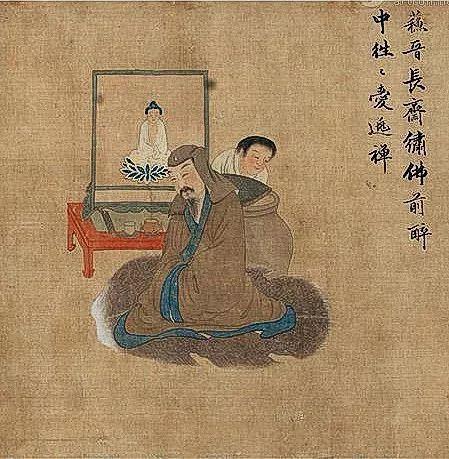 蘇晉長齋繡佛前醉
中徃〻愛逃禅